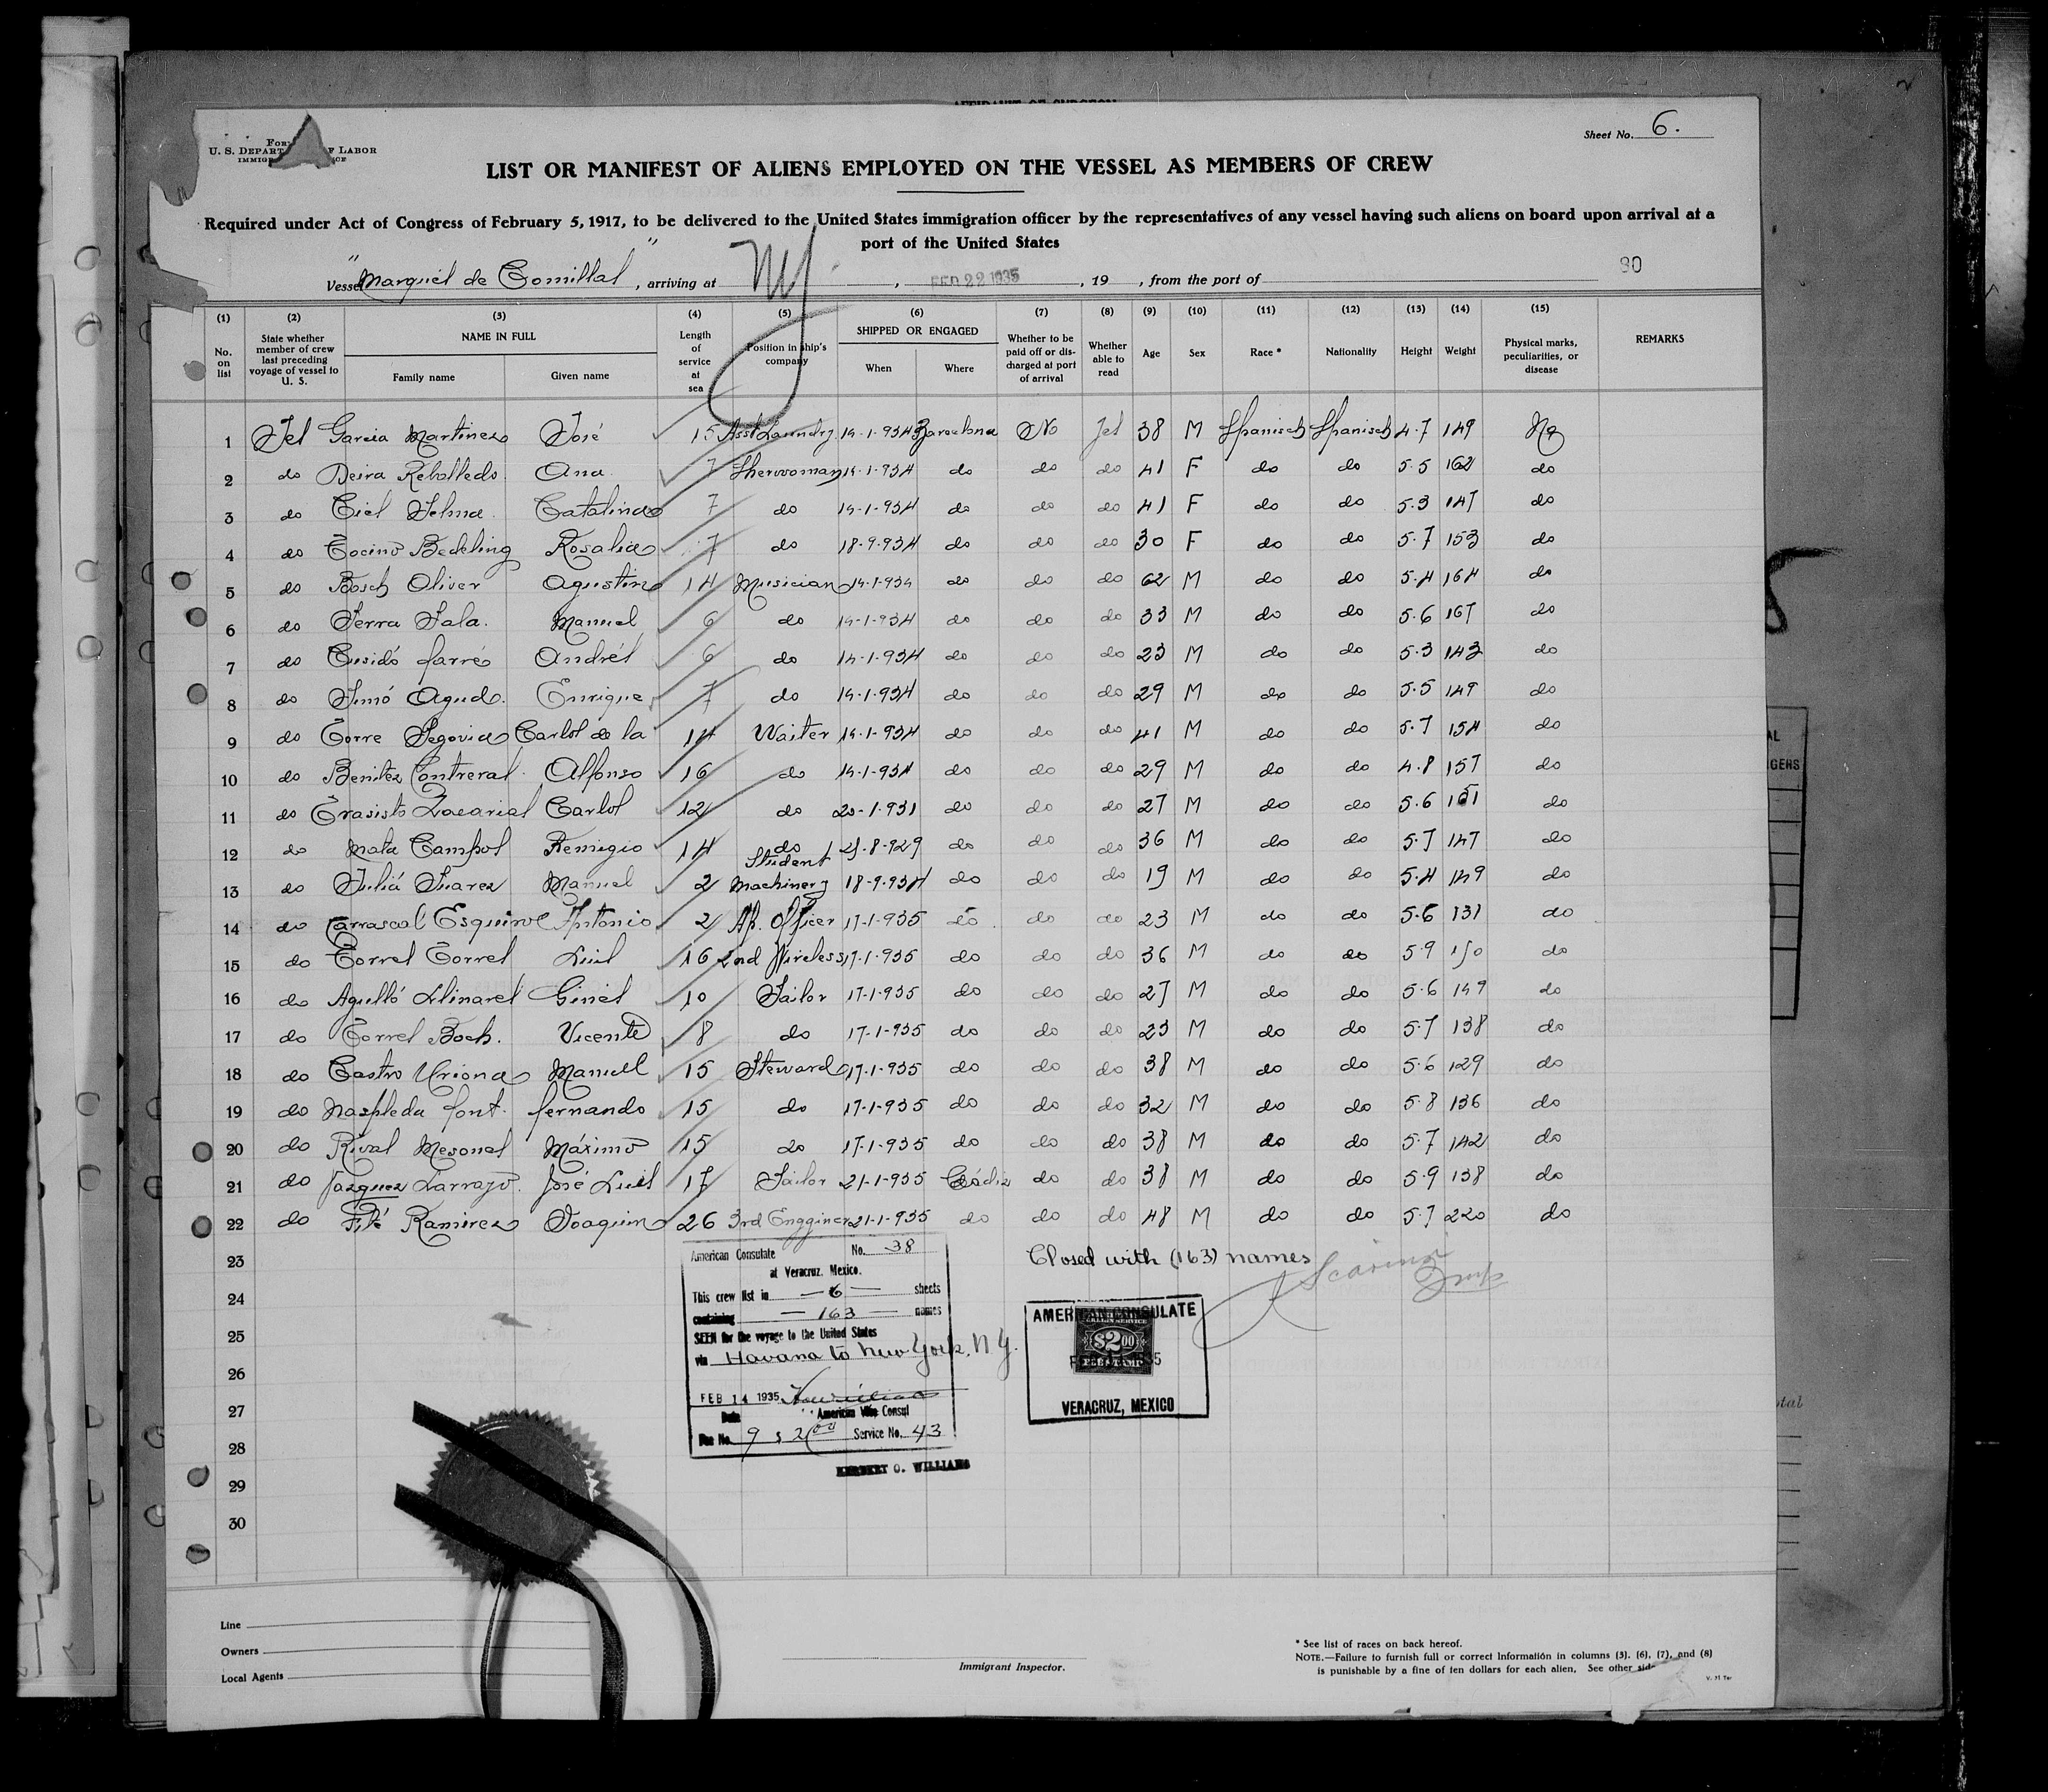 AFFIDAVIT OF SURGEON
Form
U. S. DEPARTMENT OF LABOR
Sheet No. 6.
LIST OR MANIFEST OF ALIENS EMPLOYED ON THE VESSEL AS MEMBERS OF CREW
Required under Act of Congress of February 5, 1917, to be delivered to the United States immigration officer by the representatives of any vessel having such aliens on board upon arrival at a
port of the United States
Vessel "Marqués de Comillas", arriving at NY, FEB 22 1935, 19 , from the port of
90
(1) No. on list (2) State whether member of crew last preceding voyage of vessel to U. S. (3) NAME IN FULL Family name Given name (4) Length of service at sea (5) Position in ship's company (6) SHIPPED OR ENGAGED When Where (7) Whether to be paid off or discharged at port of arrival (8) Whether able to read (9) Age (10) Sex (11) Race * (12) Nationality (13) Height (14) Weight (15) Physical marks, peculiarities, or disease REMARKS
1 Yes Garcia Martinez José 15 Asst Laundry 14-1-934 Barcelona No Yes 38 M Spanisch Spanisch 4.7 149 No
2 do Neira Rebolledo Ana 7 14-1-934 do do do 41 F do do 5.5 162 do
3 do Catalina 7 do 14-1-934 do do do 41 F do do 5.3 147 do
4 do Rosalia 7 do 18-9-934 do do do 30 F do do 5.7 153 do
5 do Bosch Oliver Agustin 14 Musician 14-1-934 do do do 62 M do do 5.4 164 do
6 do Serra Sala. Manuel 6 do 14-1-934 do do do 33 M do do 5.6 167 do
7 do Cusidó farré Andrés 6 do 14-1-934 do do do 23 M do do 5.3 143 do
8 do Simó Agud. Enrique 7 do 14-1-934 do do do 29 M do do 5.5 149 do
9 do Torre Segovia Carlos de la 14 Waiter 14-1-934 do do do 41 M do do 5.7 154 do
10 do Benitez Contreras Alfonso 16 do 14-1-934 do do do 29 M do do 4.8 157 do
11 do Zacarias Carlos 12 do 20-1-931 do do do 27 M do do 5.6 151 do
12 do Mata Campos Remigio 14 do 21-8-929 do do do 36 M do do 5.7 147 do
13 do Juliá Suarez Manuel 2 Student Machinery 18-9-934 do do do 19 M do do 5.4 149 do
14 do Carrascal Esquivel Antonio 2 Ap. Officer 17-1-935 do do do 23 M do do 5.6 131 do
15 do Torres Torres Luis 16 2nd Wireless 17-1-935 do do do 36 M do do 5.9 150 do
16 do Agulló Llinares Ginés 10 Sailor 17-1-935 do do do 27 M do do 5.6 149 do
17 do Torres Boch. Vicente 8 do 17-1-935 do do do 23 M do do 5.7 138 do
18 do Castro Uriona Manuel 15 Steward 17-1-935 do do do 38 M do do 5.6 129 do
19 do Naspleda font. fernando 15 do 17-1-935 do do do 32 M do do 5.8 136 do
20 do Rivas Mesones Máximo 15 do 17-1-935 do do do 38 M do do 5.7 142 do
21 do Vazquez Larrayo. José Luis 17 Sailor 21-1-935 Cádiz do do 38 M do do 5.9 138 do
22 do Fité Ramirez Joaquin 26 3rd Engginer 21-1-935 do do do 48 M do do 5.7 220 do
23
24
25
26
27
28
29
30
American Consulate No. 38
at Veracruz, Mexico.
This crew list in — 6 — sheets
containing — 163 — names
SEEN for the voyage to the United States
via Havana to New York, N.Y.
FEB 14 1935
Date American Vice Consul
Fee No. 9 $ 2.00 Service No. 43
HERBERT O. WILLIAMS
Closed with (163) names
AMERICAN CONSULATE
$2.00
FEE STAMP
VERACRUZ, MEXICO
Line
Owners
Local Agents
Immigrant Inspector.
* See list of races on back hereof.
NOTE.—Failure to furnish full or correct information in columns (3), (6), (7), and (8)
is punishable by a fine of ten dollars for each alien. See other side